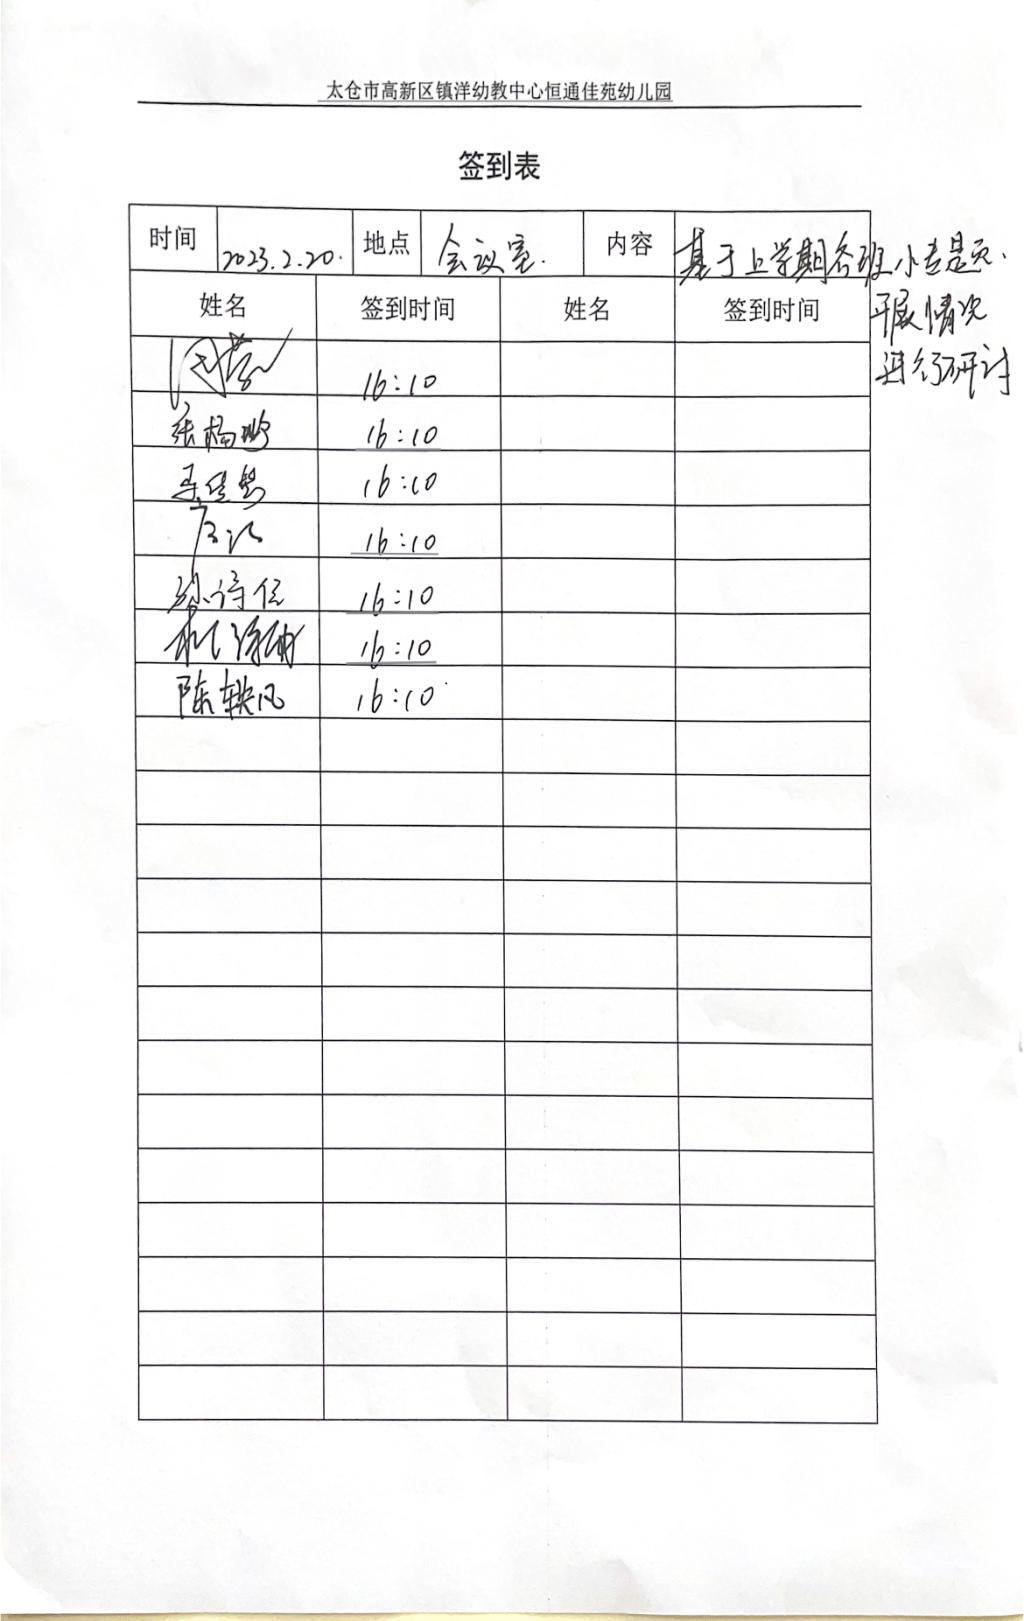 太仓市高新区镇洋幼教中心恒通佳苑幼儿园
签到表
时间 2023.2.20. 地点 会议室. 内容 基于上学期各班小专题.
开展情况
进行研讨
姓名 签到时间 姓名 签到时间
16:10
张杨 16:10
佳 16:10
16:10
孙诗 16:10
16:10
陈轶凡 16:10